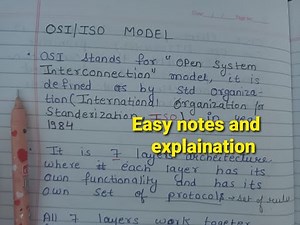 OSI/ISO MODEL
OSI stands for "Open System
Interconnection" model, it is
defined as by Std Organiza-
tion (International Organization for
Standerization ISO) in year
1984
Easy notes and
explaination
It is 7 layer architecture
where it each layer has its
own functionality and has its
own set of protocols → set of rules
All 7 layers work together